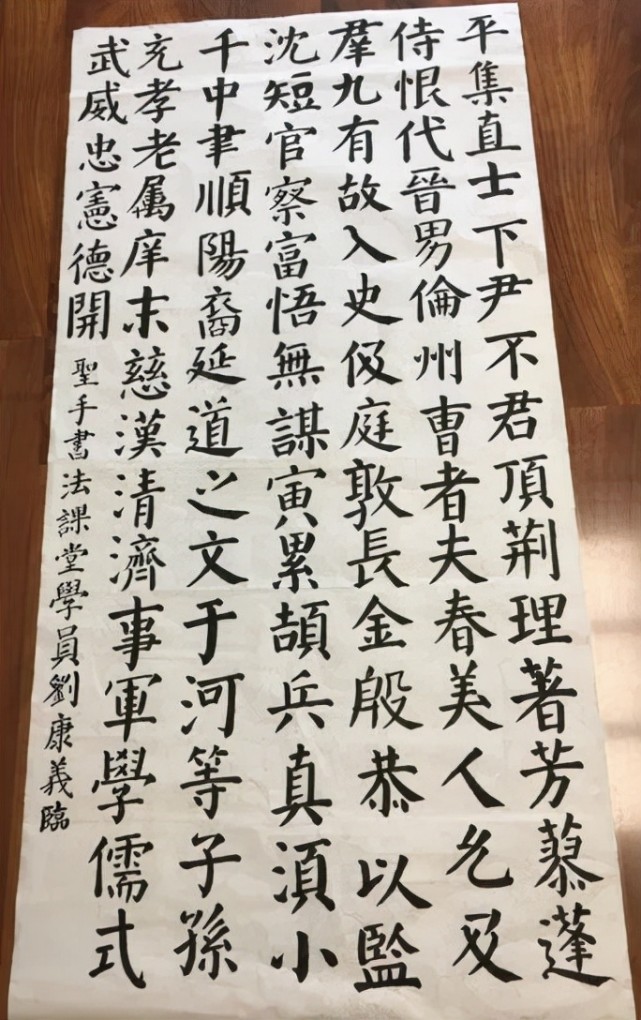 平集直士下尹不君頂荆理著芳慕蓬
侍恨代晉男倫州曺者夫春美人乞及
羣九有故入史伋庭敦長金殷恭以監
沈短官察富悟無謀寅累頡兵真須小
千中聿順陽裔延道之文于河等子孫
充孝老属庠末慈漢清濟事軍學儒式
武威忠憲德開
聖手書法課堂學員劉康義臨